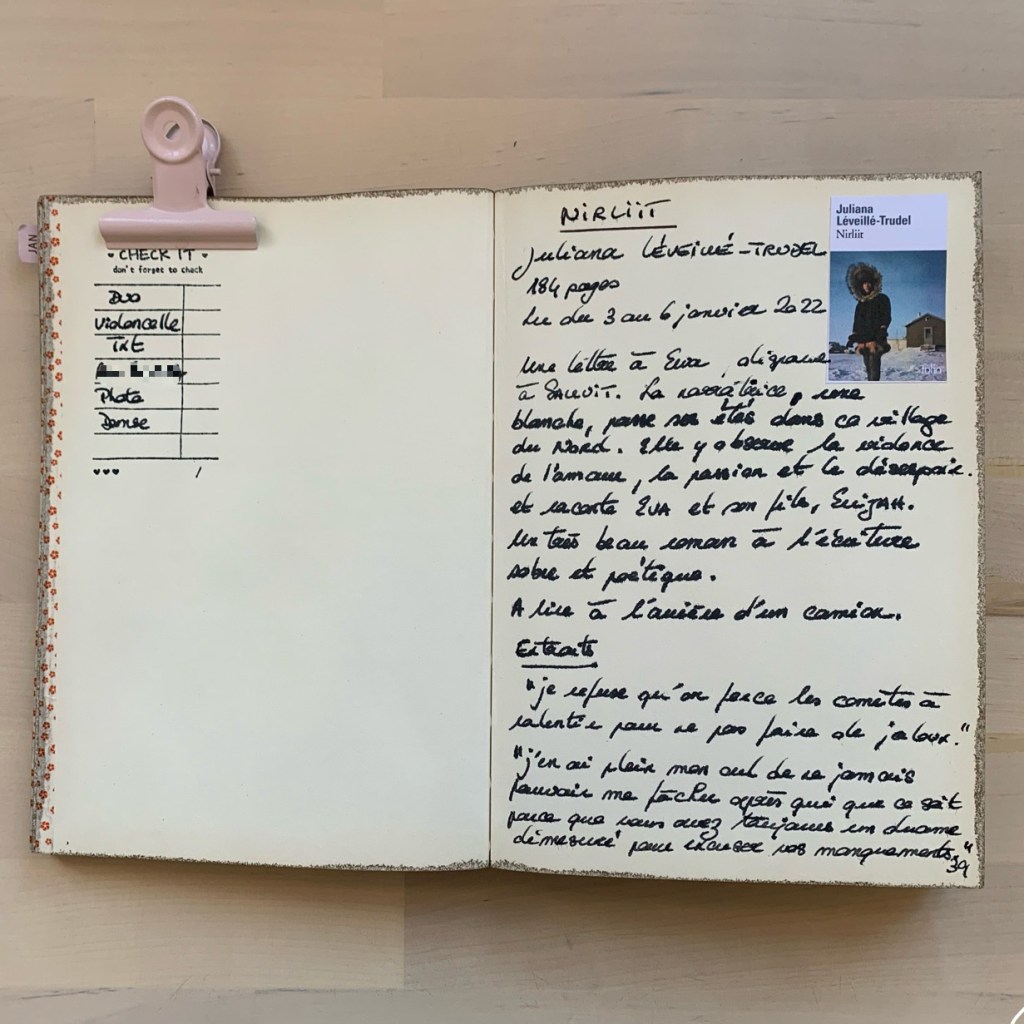 JAN
CHECK IT
don't forget to check
Duo
Violoncelle
TXT
Photo
Danse
NIRLIIT
Juliana LÉVEILLÉ-TRUDEL
184 pages
Lu du 3 au 6 janvier 2022
Une lettre à Eva, disparue
à SALLUIT. La narratrice, une
blanche, passe ses étés dans ce village
du Nord. Elle y observe la violence
de l'amour, la passion et le désespoir.
et raconte EVA et son fils, ELIJAH.
Un très beau roman à l'écriture
sobre et poétique.
A lire à l'arrière d'un camion.
Extraits
"je refuse qu'on force les comètes à
ralentir pour ne pas faire de jaloux."
"j'en ai plein mon cul de ne jamais
pouvoir me fâcher après qui que ce soit
parce que vous avez toujours un drame
démesuré pour excuser vos manquements."
39
Juliana
Léveillé-Trudel
Nirliit
folio